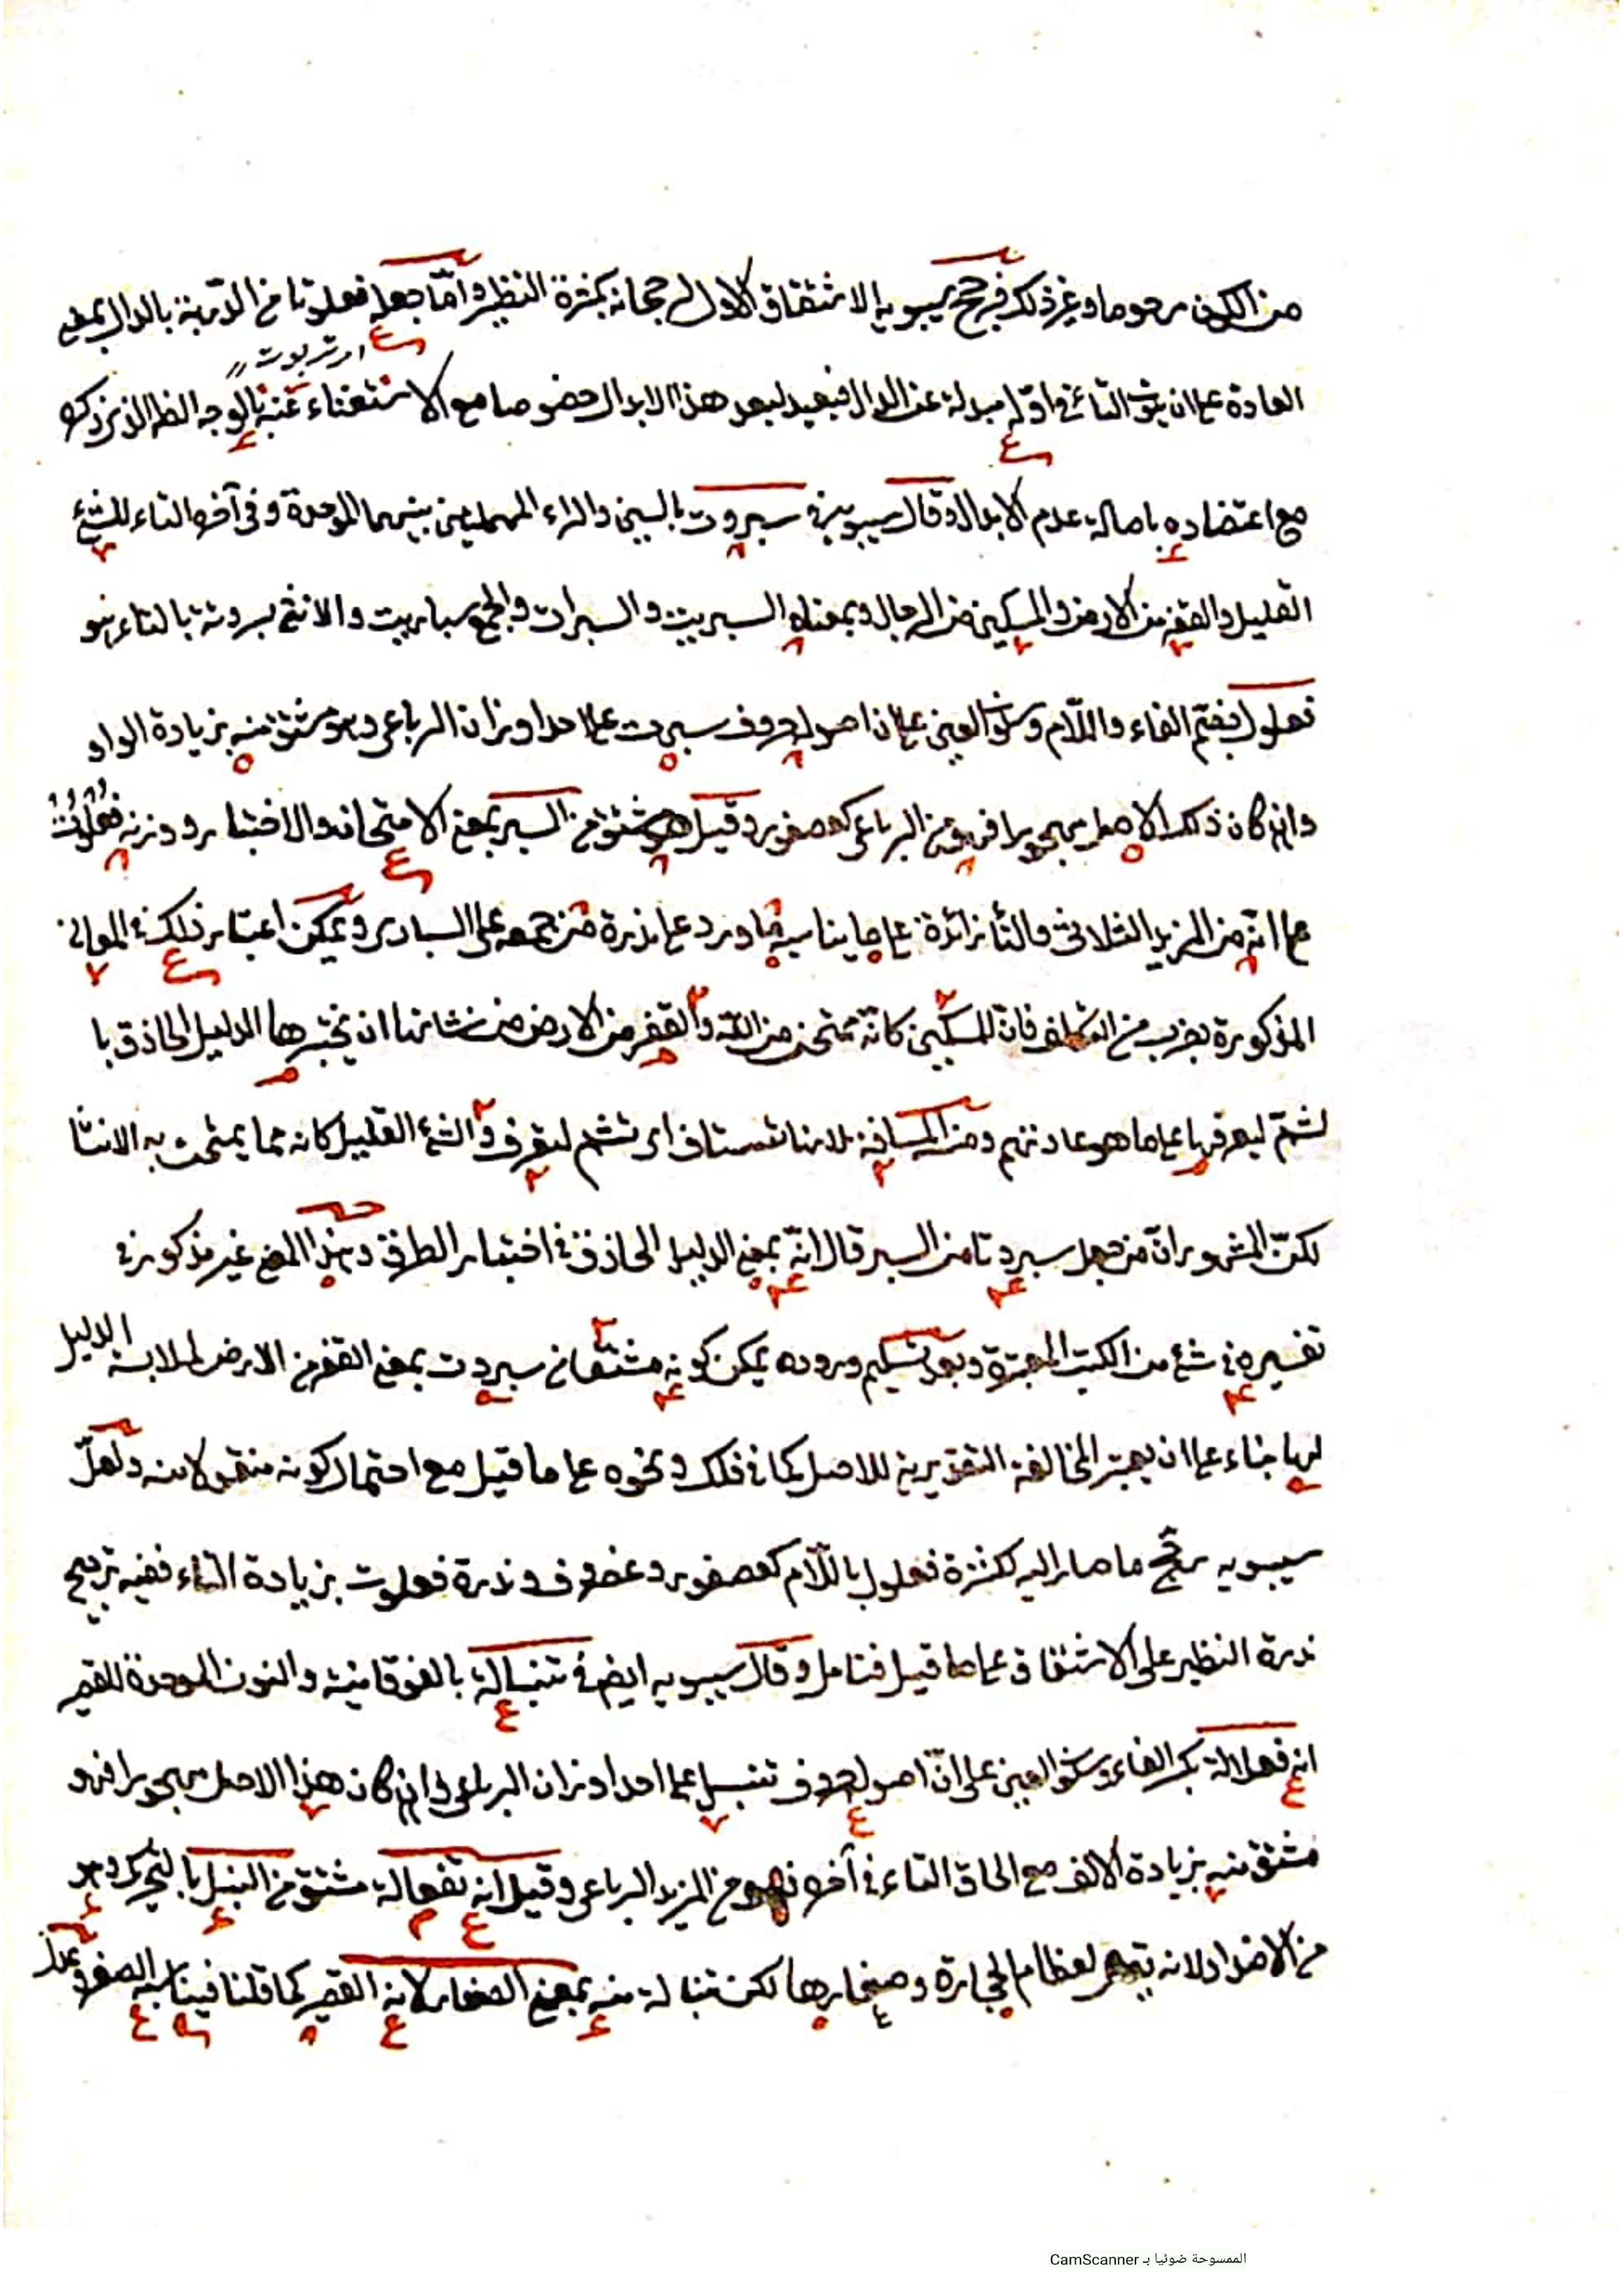 من الكون مرحوما وغير ذلك فرجح سيبويه الاشتقاق الاول لرجحانه بكثرة النظير وامّا جعله فعلوتا من الدّربة بالدال بمعنى
اى تربوت
العادة على ان يكون التاء فى اوّله مبدلة عن الدال فبعيد لبعد هذا الابدال خصوصا مع الاستغناء عنه بالوجه الظاهر الذى ذكره
مع اعتضاده باصالة عدم الابدال وقال سيبويه فى سبروت بالسين والراء المهملتين بينهما الموحدة وفى آخره التاء للشئ
القليل والقفر من الارض والمسكين من الرجال وبمعناه السبريت والسبرات والجمع سباريت والانثى سبروتة بالتاء هو
فعلول بضم الفاء واللّام وسكون العين على ان اصوله حروف سبرت على احد اوزان الرباعى وهو مشتق منه بزيادة الواو
وان كان ذلك الاصل مهجورا فهو من الرباعى كعصفور وقيل هو مشتق من السبر بمعنى الامتحان والاختبار ووزنه فعلوت
على انه من المزيد الثلاثى والتاء زائدة على ما يناسبه ما ورد على ندرة من جمعه على السبارى ويمكن اعتبار ذلك فى المعانى
المذكورة بضرب من التكلف فان المسكين كانّه ممتحن من اللّه والقفر من الارض من شانها ان يختبرها الدليل الحاذق با
لشمّ ليعرفها على ما هو عادتهم ومن المسافة لانها تستاف اى تشم ليعرف والشئ القليل كانه مما يمتحن به الانسا
لكنّ المشهور انّ من جعل سبروتا من السبر قال انّه بمعنى الدليل الحاذق فى اختبار الطرق وهذا المعنى غير مذكور فى
تفسيره فى شئ من الكتب المعتبرة وبعد تسليم وروده يمكن كونه مشتقا من سبروت بمعنى القفر من الارض لملابسة الدليل
لها بناء على ان يعتبر المخالفة التقديرية للاصل كما فى فلك ونحوه على ما قيل مع احتمال كونه منقولا منه ولعلّ
سيبويه رجّح ما صار اليه لكثرة فعلول باللّام كعصفور وغضروف وندرة فعلوت بزيادة التاء ففيه ترجيح
ندرة النظير على الاشتقاق على ما قيل فتامل وقال سيبويه ايضا فى تنبالة بالفوقانية والنون الموحدة للقصير
انه فعلالة بكسر الفاء وسكون العين على انّ اصوله حروف تنبل على احد اوزان الرباعى وان كان هذا الاصل مهجورا فهو
مشتق منه بزيادة الالف مع الحاق التاء فى آخره فهو من المزيد الرباعى وقيل انه تفعالة مشتق من النبل بالتحريك وهو
من الاضداد لانه يجئ لعظام الحجارة وصغارها لكن تنبالة منه بمعنى الصغار لانه القصير كما قلنا فيناسبه الصغر